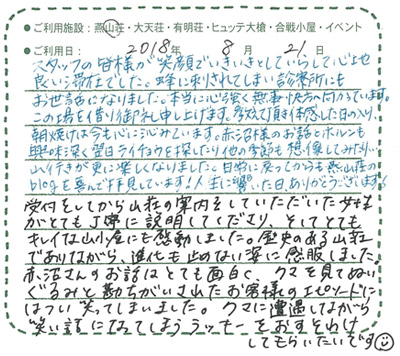 ●ご利用施設：燕山荘・大天荘・有明荘・ヒュッテ大槍・合戦小屋・イベント
●ご利用日： 2018年 8月 21日
スタッフの皆様が笑顔でいきいきとしていらして心地
良い滞在でした。蜂に刺されてしまい診療所にも
お世話になりました。本当に心強く無事快方に向かっています。
この場を借り御礼申し上げます。頂で体感した日の入り、
朝焼けは今も心に沁みています。赤沼様のお話とホルンも
興味深く翌日ライチョウを探したり他の季節も想像してみたり
山行きが更に楽しくなりました。日常に戻ってからも燕山荘の
blogを喜んで拝見しています！ ありがとうございます！
受付をしてから山荘の案内をしていただいた女性
がとても丁寧に説明してくださり、そしてとても
キレイな山小屋にも感動しました。歴史のある山荘
でありながら、進化も止めない姿に感服しました。
赤沼さんのお話はとても面白く、クマを見てぬい
ぐるみと勘ちがいされたお客様のエピソードに
はつい笑ってしまいました。クマに遭遇しながら
笑い話になってしまうラッキーをおすそわけ
してもらいたいです